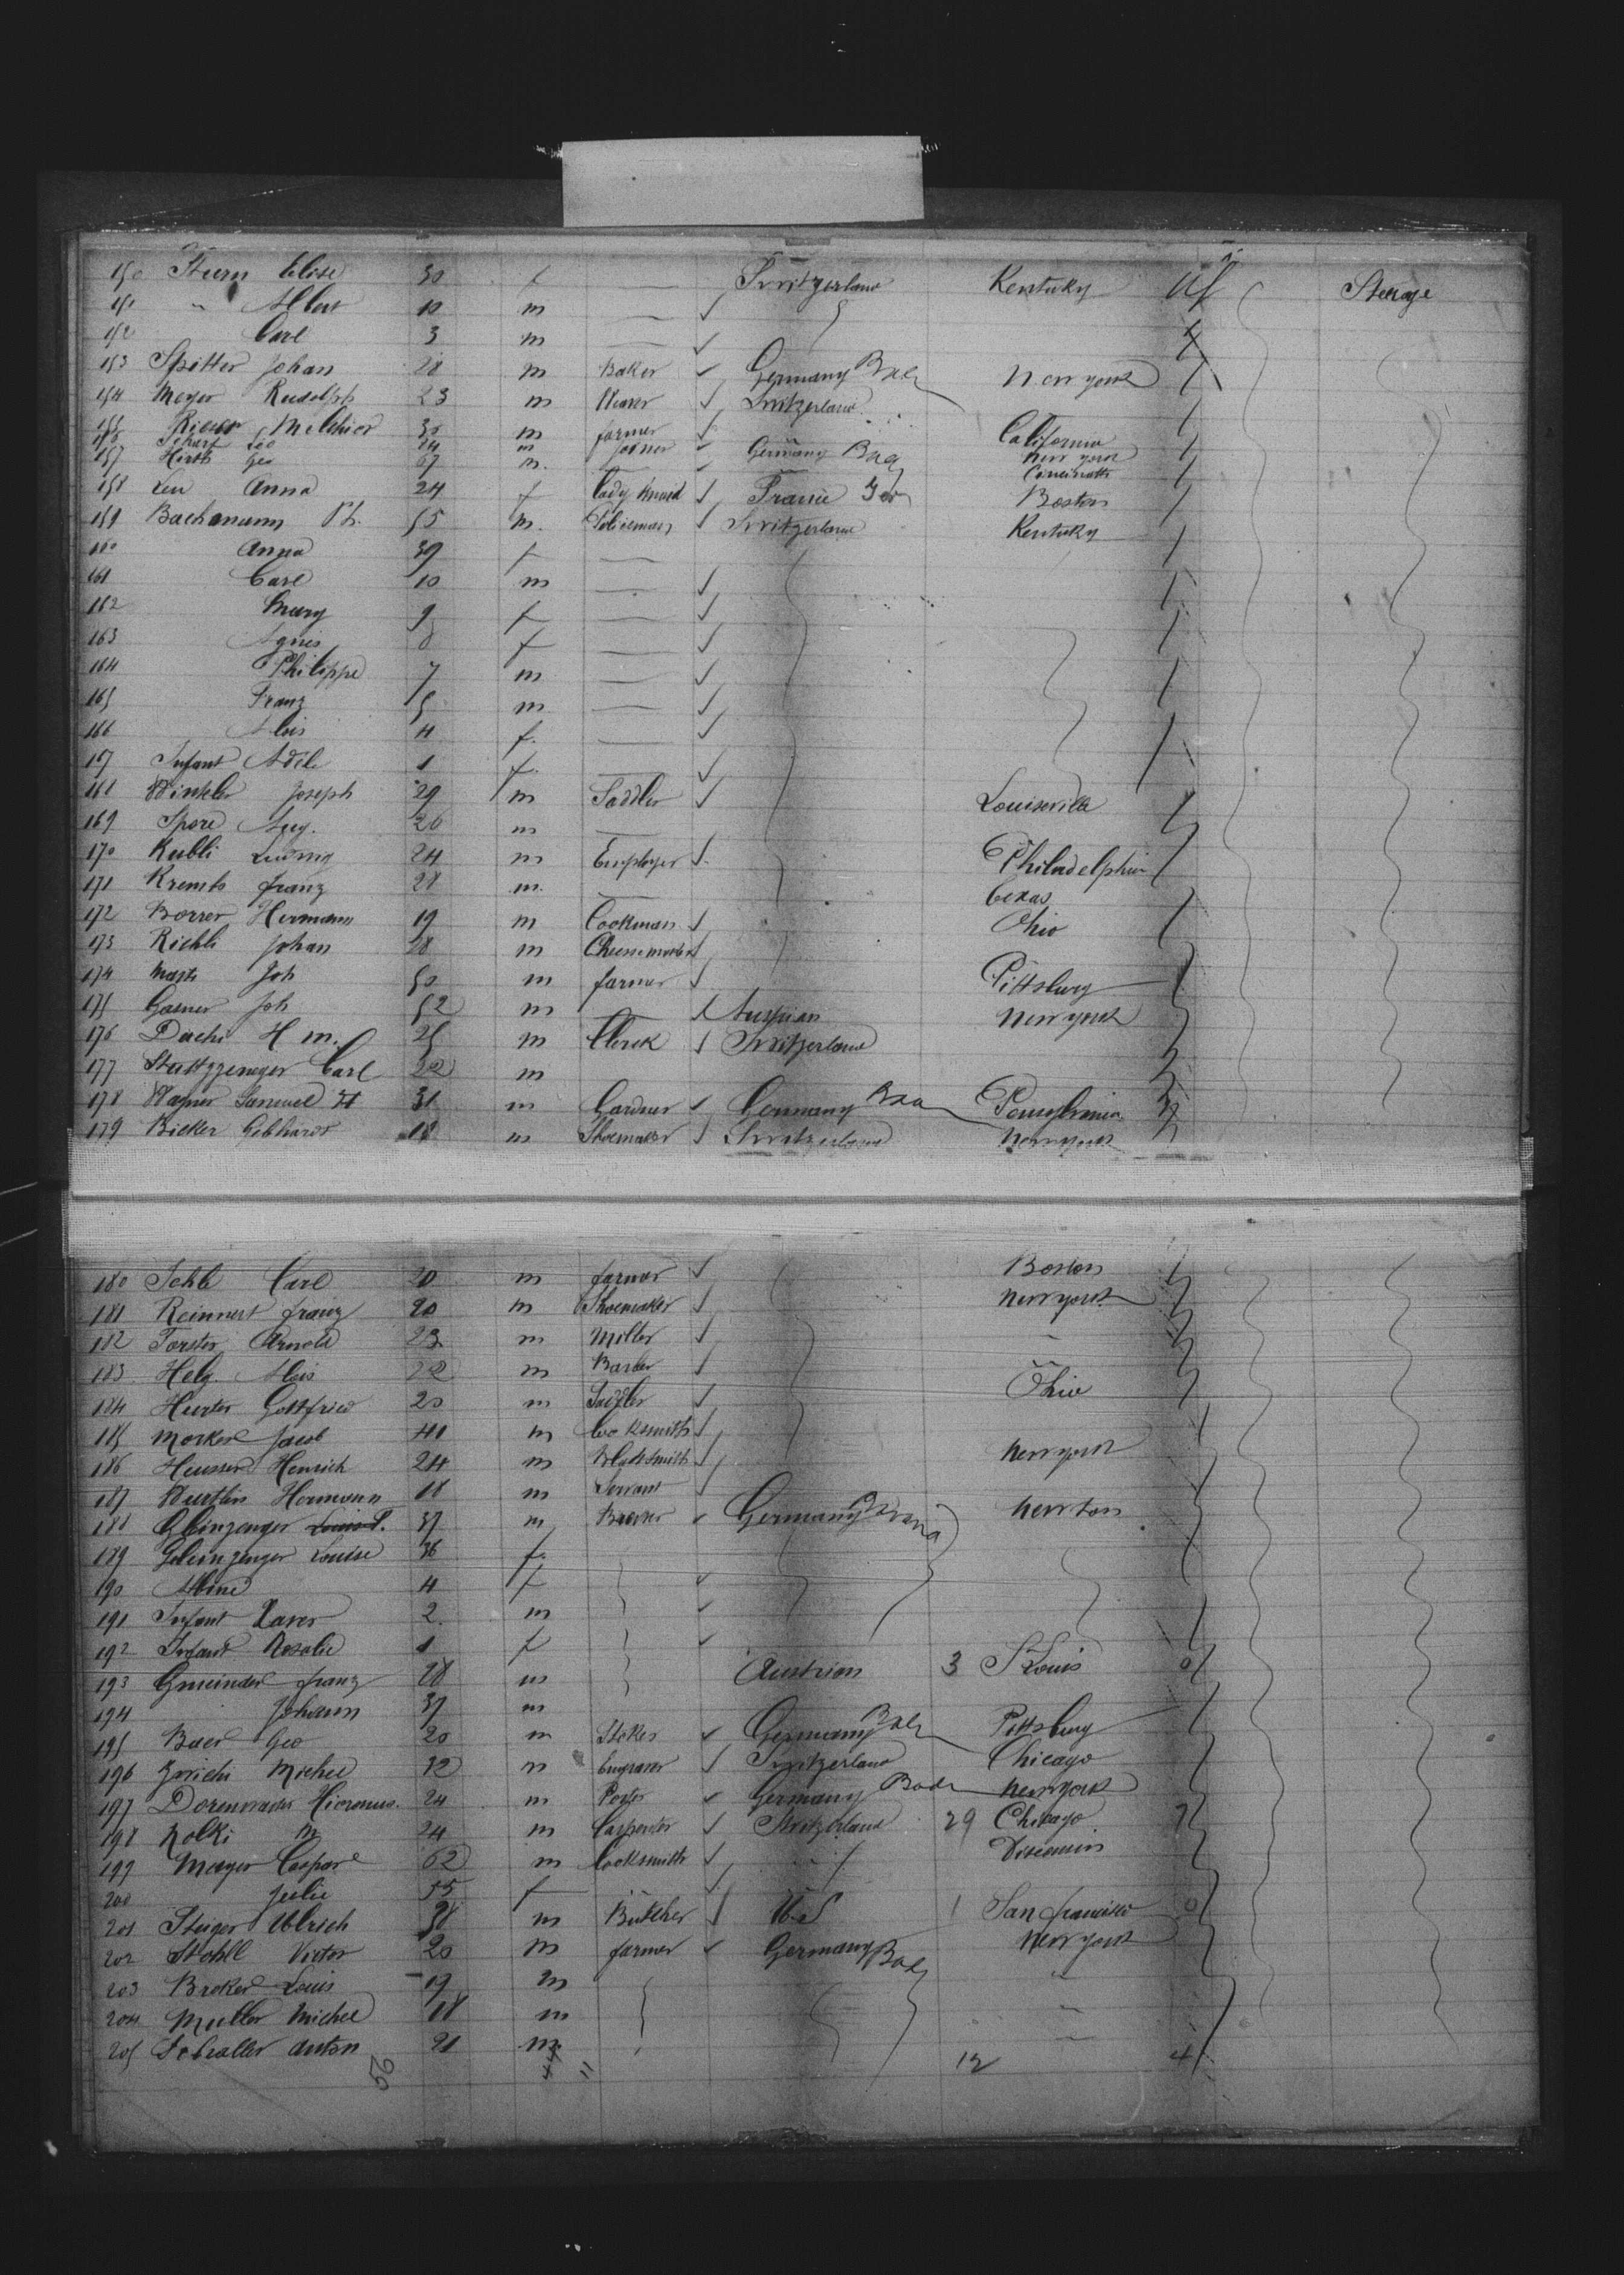 150 Sturm Elise 30 f — Switzerland Kentuky Steerage
151 " Albert 10 m —
152 Carl 3 m —
153 Spitter Johan 28 m Baker Germany New york
154 Meyer Rudolph 23 m Switzerland
155 Rieser Melchior 30 m farmer California
156 Scharf Leo 24 m Joiner Germany New york
157 Hirth Geo 67 m. — Cincinatti
158 Anna 24 f Lady maid France Boston
159 Bachmann Ph. 55 m. Switzerland Kentuky
160 Anna 39 f —
161 Carl 10 m —
162 Mary 9 f —
163 Agnes 8 f —
164 Philippe 7 m —
165 Franz 5 m —
166 Alois 4 f. —
167 Infant Adele 1 f. —
168 Winkler Joseph 29 m Saddler Louisville
169 Spore Aug. 26 m —
170 Kubli Ludwig 24 m Employer Philadelphia
171 Krembs franz 28 m. — Texas
172 Borrer Hermann 19 m Cookman Ohio
173 Richli Johan 28 m
174 Marti Joh 50 m farmer Pittsburg
175 Gasner Joh 52 m — Austrian New york
176 H m. 25 m Clerck Switzerland
177 Carl 22 m
178 Wagner Samuel 31 m Gardner Germany
179 Bicker Gebhardt 18 m Shoemaker Switzerland New york
180 Carl 20 m farmer Boston
181 Reinnert franz 20 m Shoemaker New york
182 Forster Arnold 23 m Miller "
183 Helg Alois 22 m Barber "
184 Hurter Gottfried 20 m Sadler Ohio
185 Jacob 41 m Locksmith
186 Heusser Henrich 24 m New york
187 Wurtlin Hermann 18 m Servant
188 Gleinzenger 37 m Germany Bavaria Newton
189 Gleinzenger Louise 36 f.
190 Albine 4 f
191 Infant Xaver 2 m
192 Infant Rosalie 1 f
193 Gmeinder franz 28 m Austrian 3 St Louis 0
194 Johann 37 m
195 Baer Geo 20 m Stoker Germany Pittsburg
196 Michel 32 m Engraver Switzerland Chicago
197 Hieronimus 24 m Porter Germany Baden New york
198 Nolki m 24 m Carpenter Switzerland 29 Chicago 7
199 Mayer Caspar 62 m Locksmith "
200 Julie 55 f
201 Steiger Ulrich 38 m Butcher U.S 1 San francisco 0
202 Stohll Victor 20 m farmer Germany New york
203 Broker Louis 19 m "
204 Muller Michel 18 m "
205 Anton 21 m "
12 4